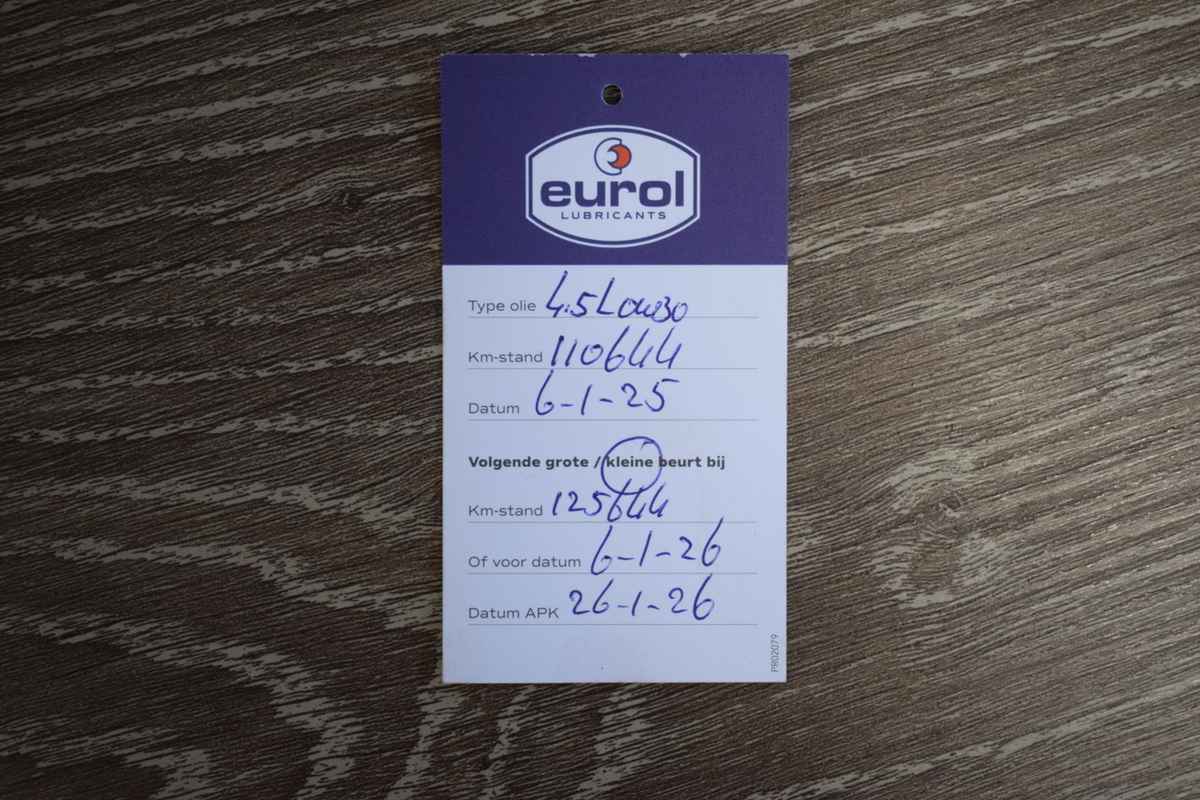 eurol
LUBRICANTS
Type olie 4.5L 0W30
Km-stand 110644
Datum 6-1-25
Volgende grote / kleine beurt bij
Km-stand 125644
Of voor datum 6-1-26
Datum APK 26-1-26
PR02079